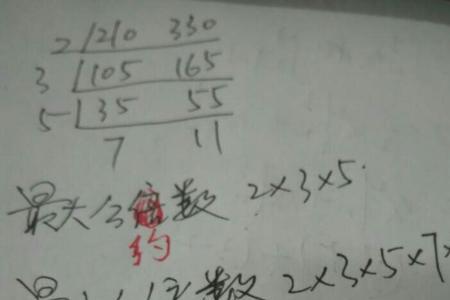 2 210 330
3 105 165
5 35 55
7 11
最大公倍数 2×3×5.
约
最小公倍数 2×3×5×7×